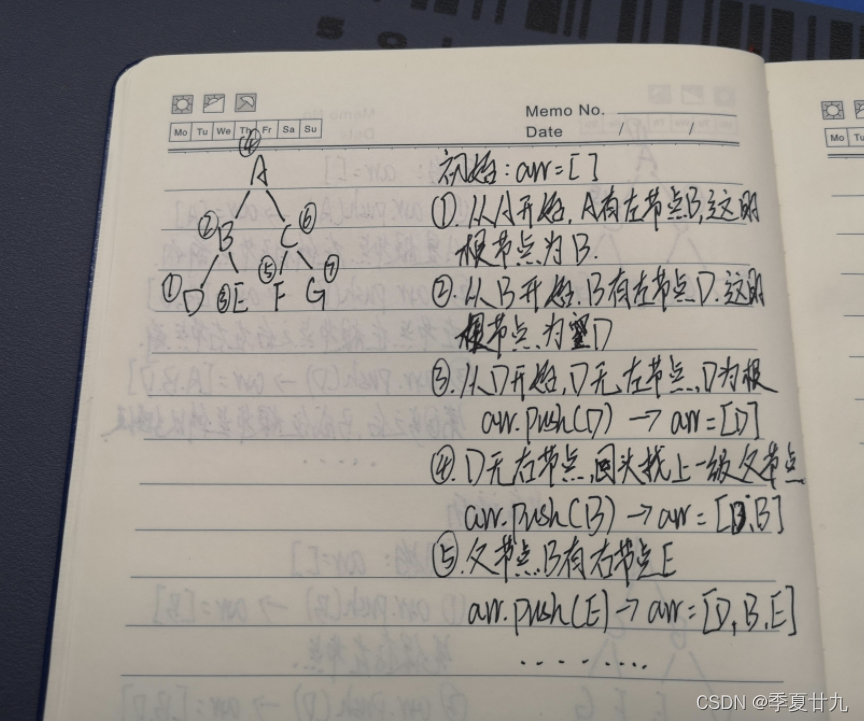 Memo No.
Mo Tu We Th Fr Sa Su
Date / /
④
A
② B C ⑥
① D ③ E ⑤ F G ⑦
初始: arr=[]
①. 从A开始, A有左节点B, 这时
根节点为B.
②. 从B开始. B有左节点D. 这时
根节点为D
③. 从D开始, D无左节点, D为根
arr.push(D) → arr=[D]
④. D无右节点, 回头找上一级父节点
arr.push(B) → arr=[D,B]
⑤. 父节点B有右节点E
arr.push(E) → arr=[D,B,E]
........
Mo Tu
CSDN @季夏廿九